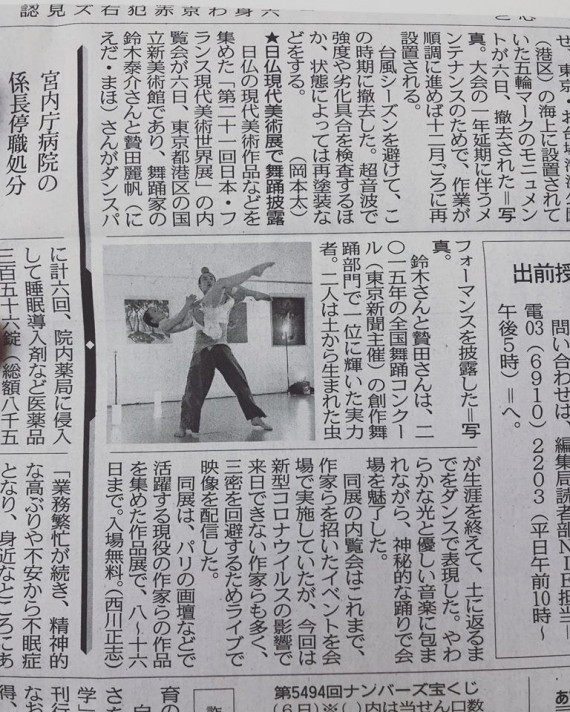 せ、東京・お台場海浜公園
（港区）の海上に設置されて
いた五輪マークのモニュメン
トが六日、撤去された＝写
真。大会の一年延期に伴うメ
ンテナンスのためで、作業が
順調に進めば十二月ごろに再
設置される。
台風シーズンを避けて、こ
の時期に撤去した。超音波で
強度や劣化具合を検査するほ
か、状態によっては再塗装な
どをする。（岡本太）
★日仏現代美術展で舞踊披露
日仏の現代美術作品などを
集めた「第二十一回日本・フ
ランス現代美術世界展」の内
覧会が六日、東京都港区の国
立新美術館であり、舞踊家の
鈴木泰介さんと贄田麗帆（に
えだ・まほ）さんがダンスパ
フォーマンスを披露した＝写
真。
鈴木さんと贄田さんは、二
〇一五年の全国舞踊コンクー
ル（東京新聞主催）の創作舞
踊部門で一位に輝いた実力
者。二人は土から生まれた虫
が生涯を終えて、土に返るま
でをダンスで表現した。やわ
らかな光と優しい音楽に包ま
れながら、神秘的な踊りで会
場を魅了した。
同展の内覧会はこれまで、
作家らを招いたイベントを会
場で実施していたが、今回は
新型コロナウイルスの影響で
来日できない作家らも多く、
三密を回避するためライブで
映像を配信した。
同展は、パリの画壇などで
活躍する現役の作家らの作品
を集めた作品展で、八〜十六
日まで。入場無料。（西川正志）
出前授
問い合わせは、編集局読者部ＮＩＥ担当＝
電03（6910）2203（平日午前10時〜
午後5時）＝へ。
宮内庁病院の
係長停職処分
に計六回、院内薬局に侵入
して睡眠導入剤など医薬品
三百五十六錠（総額八千五
「業務繁忙が続き、精神的
な高ぶりや不安から不眠症
となり、身近なところにあ
第5494回ナンバーズ宝くじ
（6日）※（ ）内は当せん口数